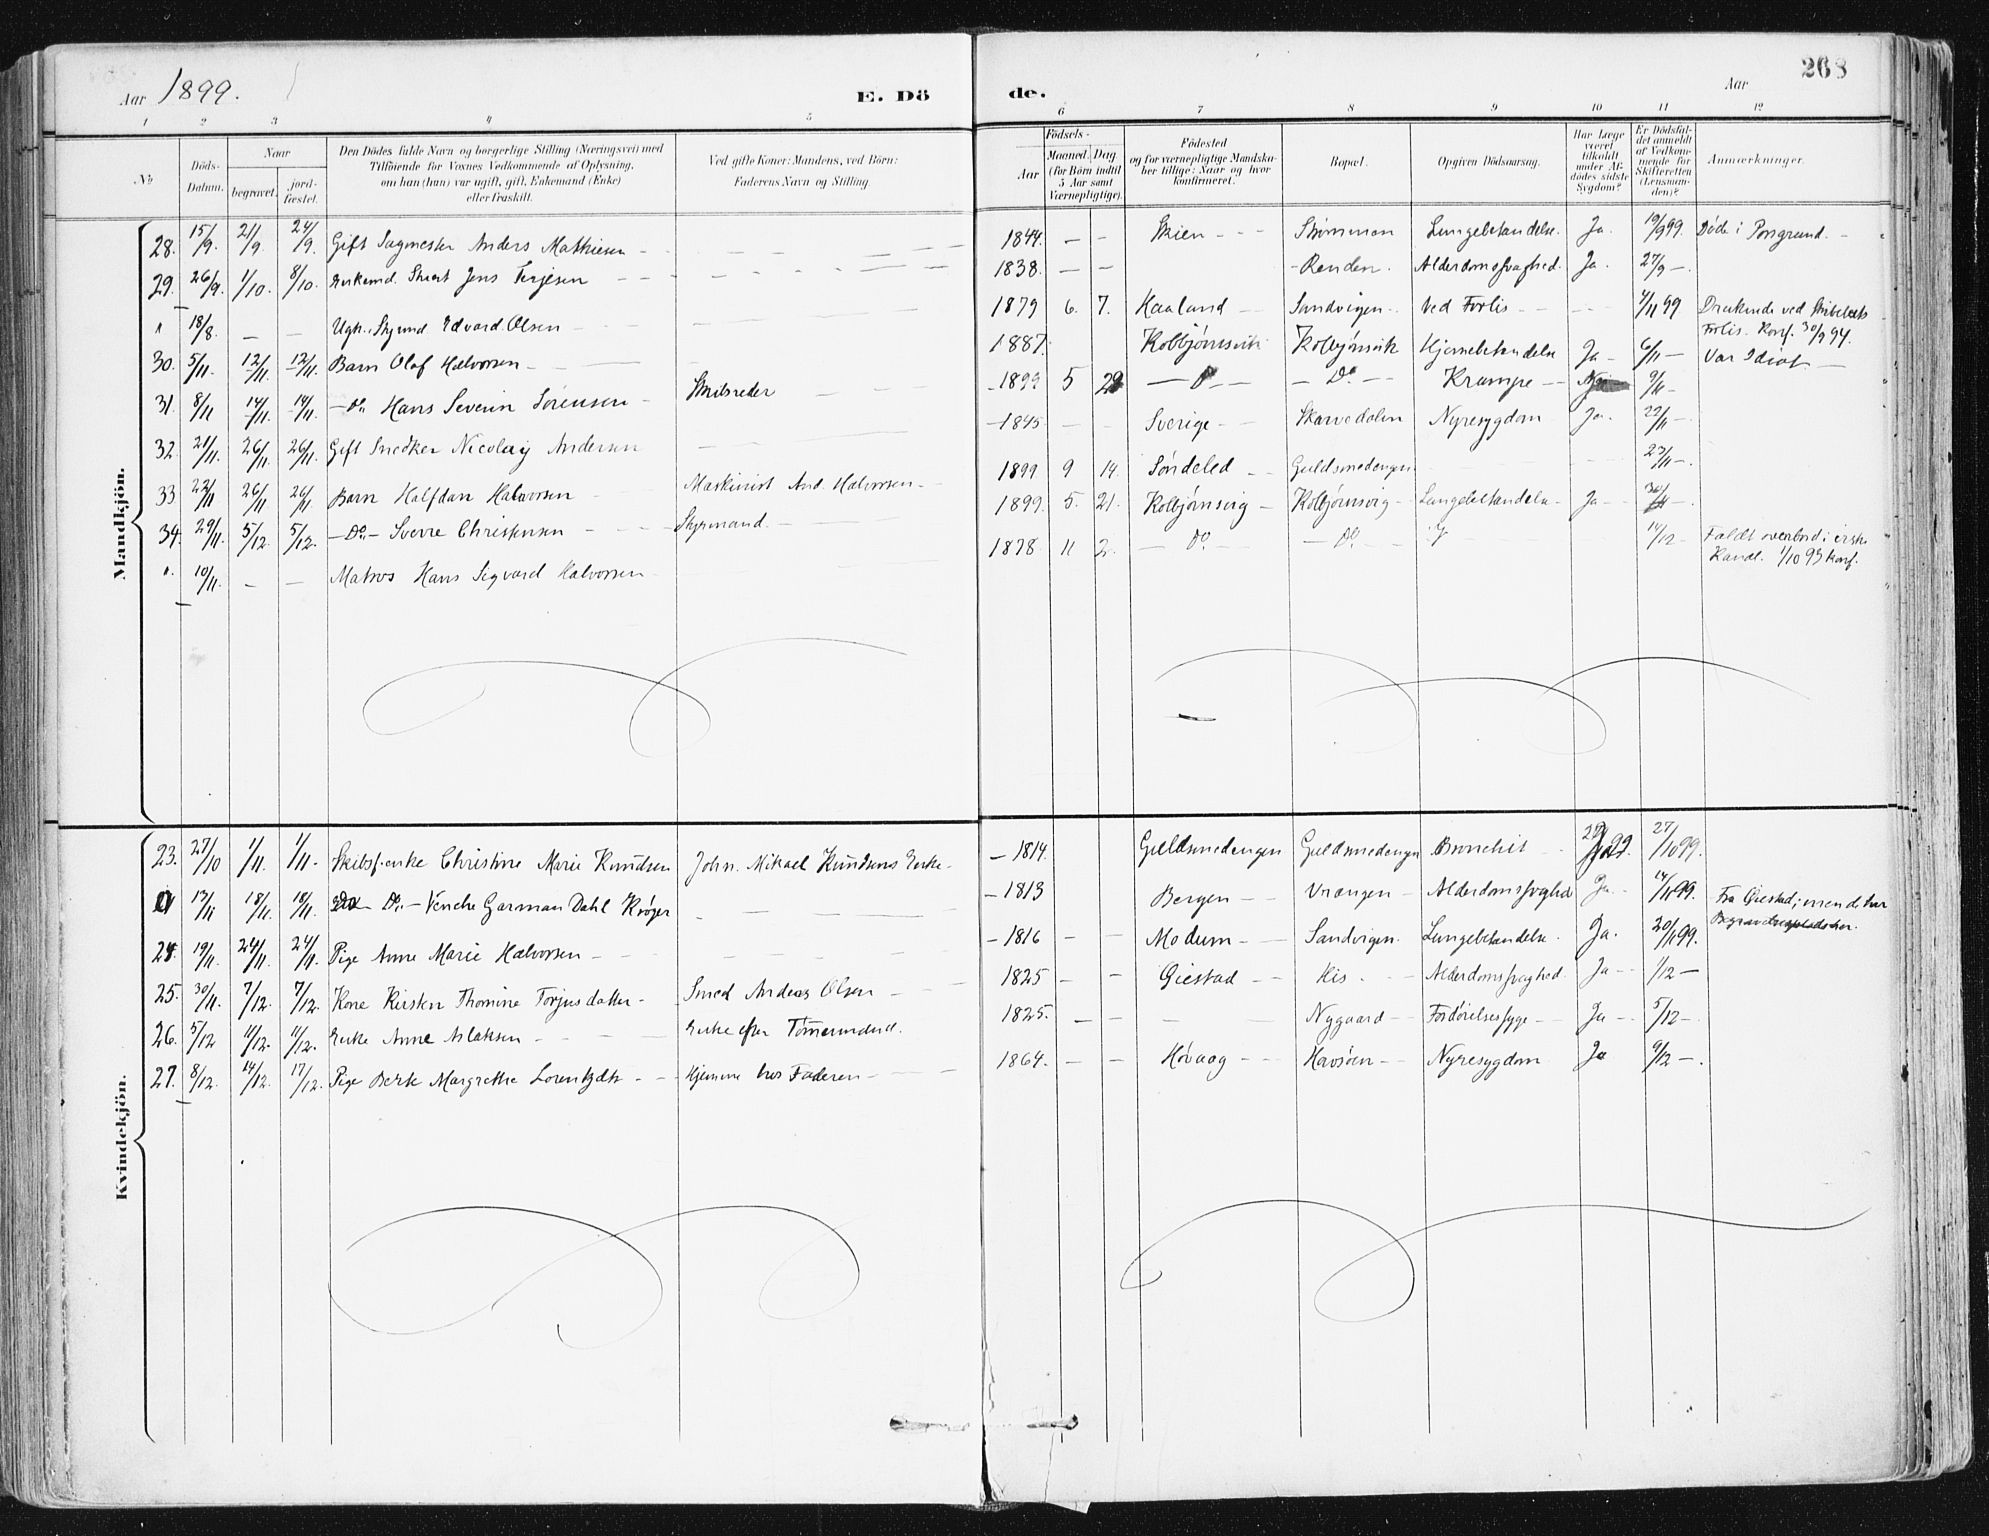 Aar 1899. E. Dö de. Aar 268
1 2 3 4 5 6 7 8 9 10 11 12
No
Döds-Datum.
Naar
begravet.
jord-fæstet.
Den Dödes fulde Navn og borgerlige Stilling (Næringsvei) med
Tilföiende for Voxnes Vedkommende af Oplysning,
om han (hun) var ugift, gift, Enkemand (Enke)
eller fraskilt.
Ved gifte Koner: Mandens, ved Börn:
Faderens Navn og Stilling.
Födsels-
Aar
Maaned. Dag.
(for Börn indtil
5 Aar samt
Værnepligtige).
Födested
og for værnepligtige Mandska-
ber tillige: Naar og hvor
konfirmeret.
Bopæl.
Opgiven Dödsaarsag.
Har Læge
været
tilkaldt
under Af-
dödes sidste
Sygdom?
Er Dödsfal-
det anmeldt
af Vedkom-
mende for
Skifteretten
(Lensman-
den)?
Anmærkninger.
Mandkjön.
28. 15/9. 21/9. 24/9. Gift Sagmester Anders Mathiesen
29. 26/9. 1/10. 8/10. Enkemd. Jens Terjesen
" 18/8. — — Ugh. Styrmd Edvard Olsen
30. 5/11. 12/11. 12/11. Barn Olaf Halvorsen
31. 8/11 14/11. 14/11. — Do. Hans Severin Sörensen — Skibsreder
32. 21/11. 26/11. 26/11. Gift Snedker Nicolay Andersen
33 22/11 26/11. 26/11. Barn Halfdan Halvorsen Maskinist And. Halvorsen
34. 29/11. 5/12. 5/12. — Do. — Sverre Christensen Styrmand.
". 10/11. — — Matros Hans Sigvard Halvorsen
1844. — — Skien Strömmen Lungebetændelse. Ja. 19/9 99. Döde i Porsgrund.
1838. — — Renden. Alderdomssvaghed. Ja. 27/9 —.
1879 6. 7. Haaland Sandvigen Ved Forlis 4/11 99 Druknede ved Skibets
Forlis. Konf. 30/9 94.
1887. Kolbjörnsvik Kolbjörnsvik Hjernebetændelse Ja 6/11 — Var Idiot —
1899 5 29 — Do — — Do — Krampe 9/11 —
1845 — — Sverige Skarvedalen Nyresygdom Ja. 22/11 —
1899 9 14. Söndeled Guldsmedengen 23/11 —.
1899. 5. 21. Kolbjörnsvig Kolbjörnsvig Lungebetændelse Ja 30/11 —.
1878. 11 2. — Do — — Do. — 14/12 — Faldt overbord i irske
Kanal. 1/10 93 konf.
Kvindekjön.
23. 27/10 1/11. 1/11. Skibsf. enke Christine Marie Knudsen John. Mikael Knudsens Enke
13/11 18/11. 18/11. Do. — Venche Garman Dahl Kröger
24. 19/11. 24/11. 24/11. Pige Anne Marie Halvorsen
25. 30/11. 7/12. 7/12. Kone Kirsten Thomine Torjusdatter — Smed Andeas Olsen
26. 5/12 11/12. 11/12. Enke Anne Aslaksen Enke efter Tömmermd.
27. 8/12. 14/12. 17/12. Pige Berte Margrethe Lorentzdtr Hjemme hos Faderen
— 1814. Guldsmedengen Guldsmedengen Bronchit Ja 27/10 99.
— 1813 Bergen Vrængen Alderdomssvaghed Ja. 14/11 99. Fra Öiestad; men de har
Begravelsesplads her.
— 1816 — — Modum Sandvigen Lungebetændelse. Ja. 20/11 99.
1825 — — Öiestad His. Alderdomssvaghed. Ja 1/12 —
1825. — — — Nygaard Ja 5/12 —.
1864. — — Hövaag Havsöen Nyresygdom Ja 9/12 —.